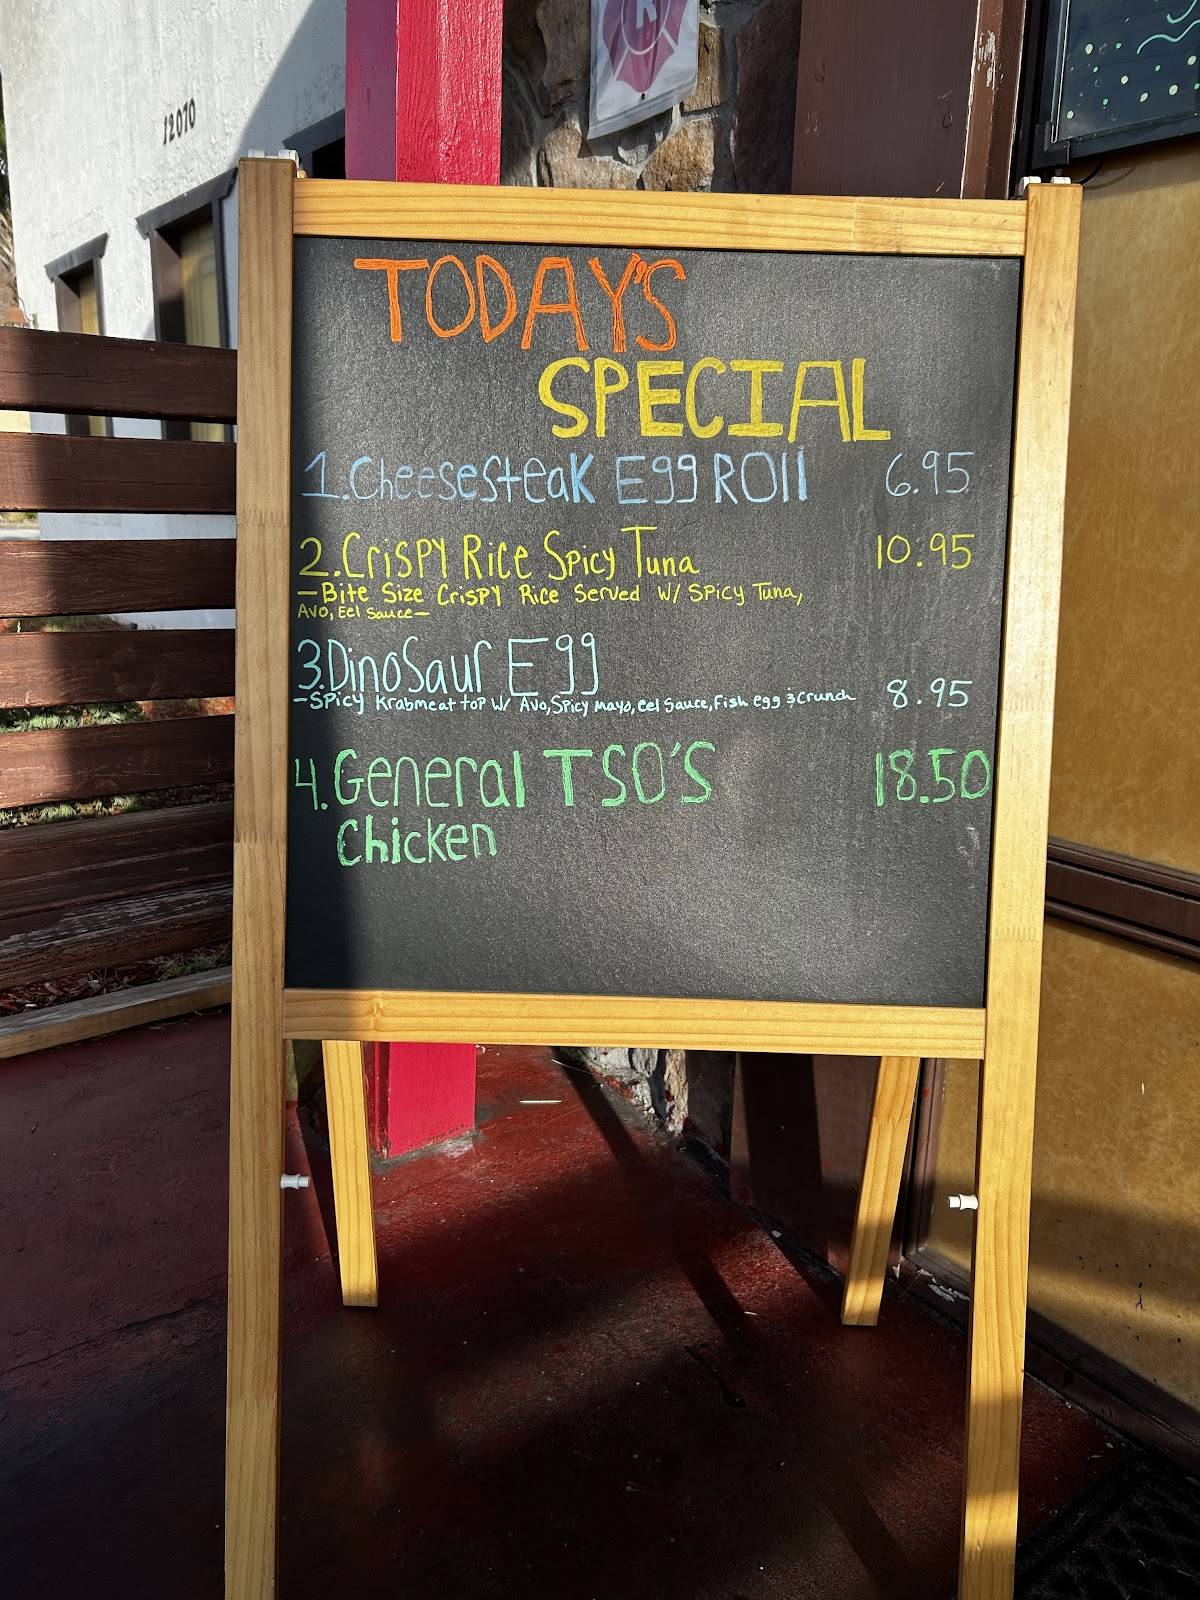 12070
R
TODAY'S
SPECIAL
1. Cheesesteak Egg Roll 6.95
2. Crispy Rice Spicy Tuna 10.95
- Bite Size Crispy Rice Served w/ Spicy Tuna,
Avo, Eel Sauce -
3. Dinosaur Egg
- Spicy Krabmeat top w/ Avo, Spicy mayo, eel sauce, Fish egg & crunch 8.95
4. General TSO'S 18.50
Chicken